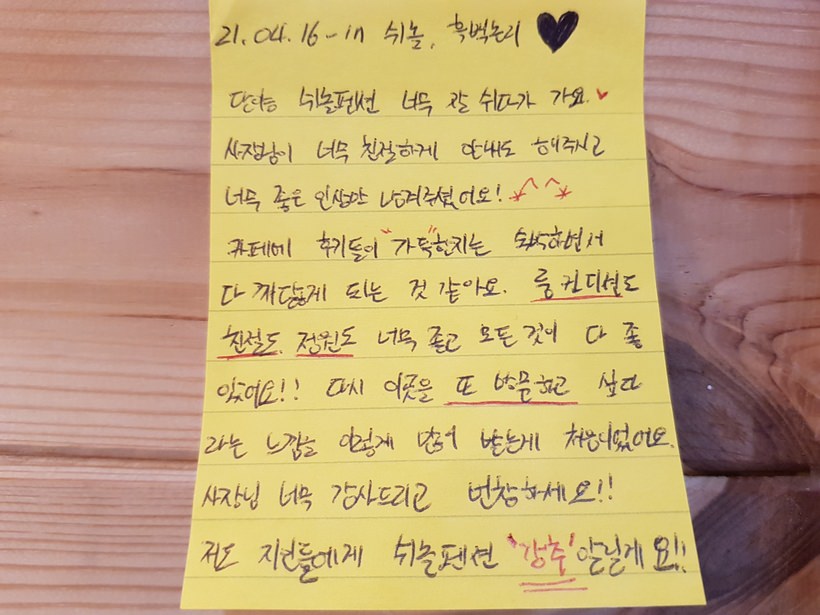 21.04.16 - in 쉬놀, 흑백논리 ♥
쉬놀펜션 너무 잘 쉬다가 가요 ♥
사장님이 너무 친절하게 안내도 해주시고
너무 좋은 인상만 남겨주셨어요! *^^*
카페에 후기들이 "가득"한지는 숙박하면서
다 깨닫게 되는 것 같아요. 룸컨디션도
친절도, 정원도 너무 좋고 모든 것이 다 좋
았어요!! 다시 이곳을 또 방문하고 싶다
라는 느낌을 이렇게 많이 받는게 처음이었어요.
사장님 너무 감사드리고 번창하세요!!
저도 지인들에게 쉬놀펜션 '강추' 알릴게요!!